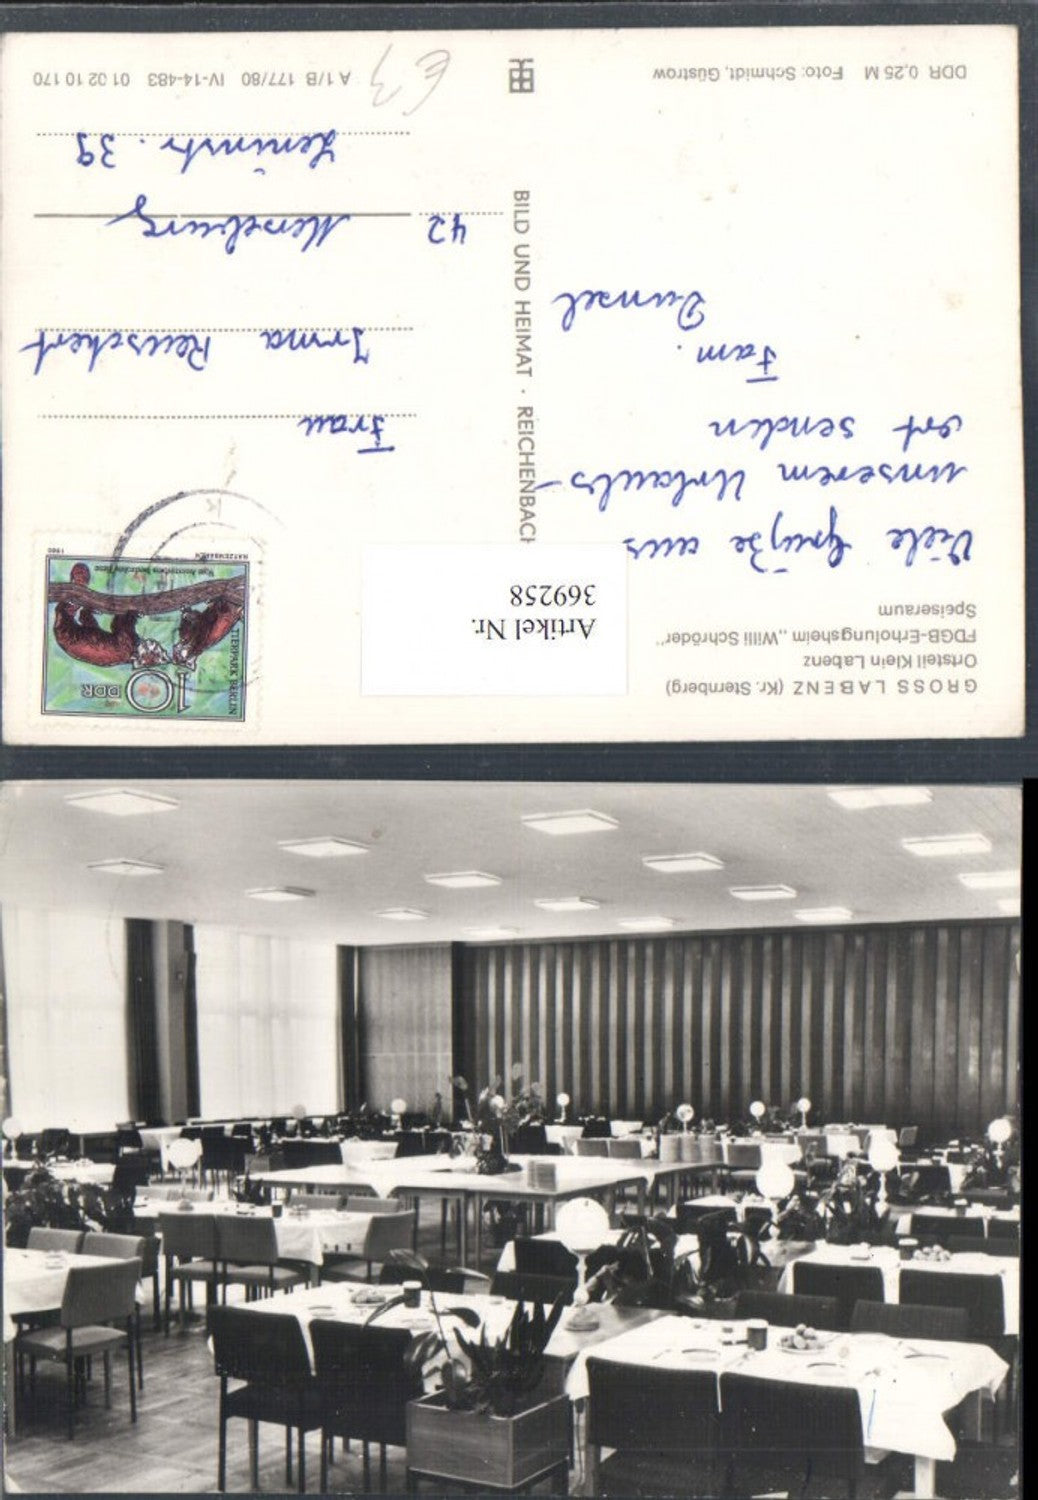 GROSS LABENZ (Kr. Sternberg)
Ortsteil Klein Labenz
FDGB-Erholungsheim „Willi Schröder"
Speiseraum
Viele Grüße aus
unserem Urlaubs-
ort senden
Fam.
Dunsel
DDR 0,25 M Foto: Schmidt, Güstrow
BILD UND HEIMAT · REICHENBACH
Artikel Nr.
369258
TIERPARK BERLIN
10 DDR
1980
Frau
Irma Reuschert
42 Merseburg
Leninstr. 39
A 1/B 177/80 IV-14-483 01 02 10 170